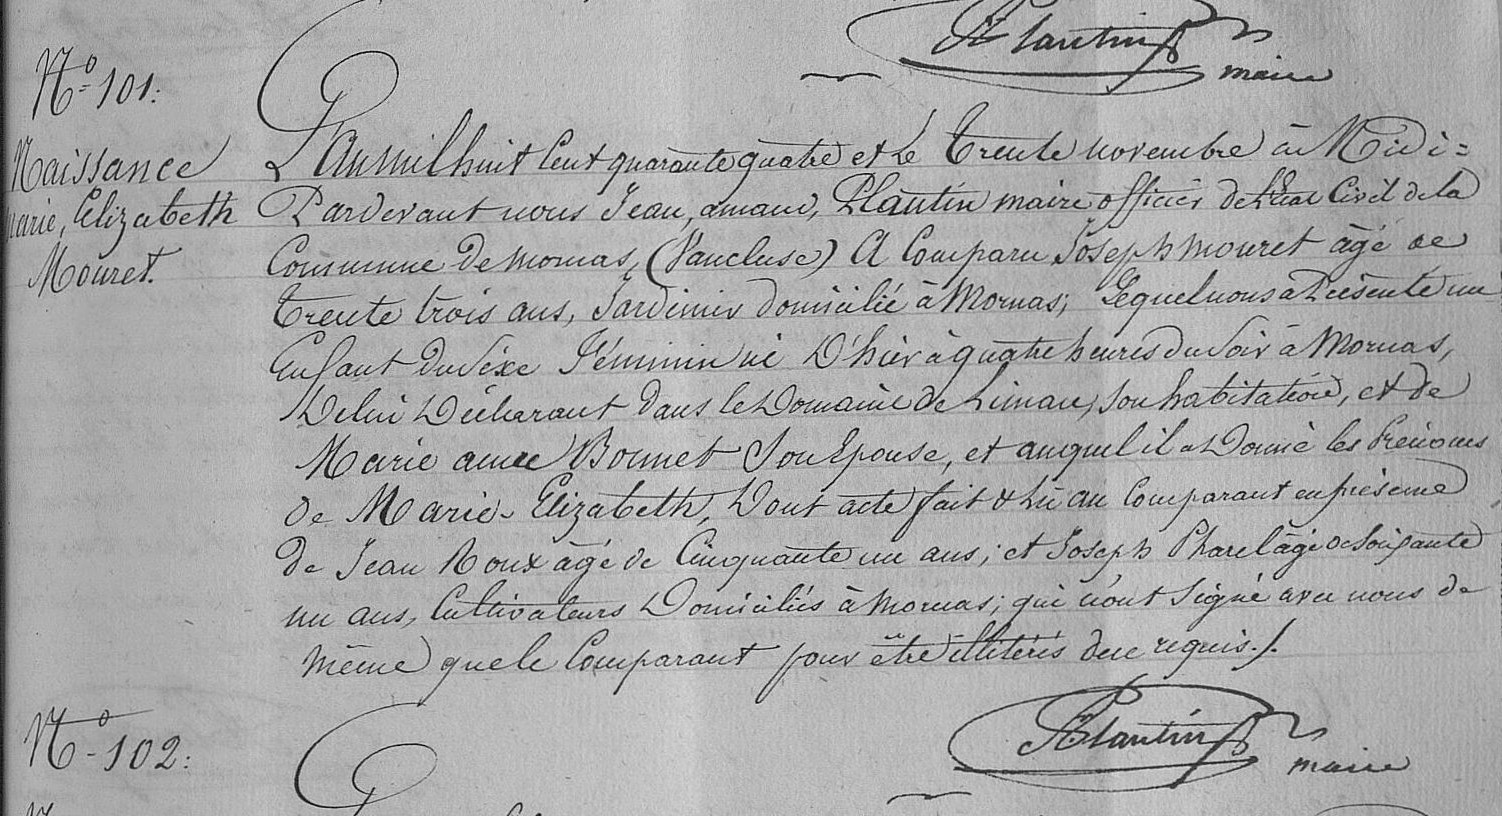 Plantin
maire
N.º 101:
Naissance
Marie, Elizabeth
Mouret.
L'an mil huit Cent quarante quatre et le Trente novembre à Midi=
Pardevant nous Jean, amand, Plantin maire officier de l'Etat Civil de la
Commune de mornas, (Vaucluse) A Comparu Joseph mouret âgé de
trente trois ans, Jardinier domicilié à Mornas, Lequel nous a Présenté un
Enfant du Séxe Féminin né D'hier à quatre heures du Soir à Mornas,
De lui Déclarant dans le Domaine de son habitation, et de
Marie Bonnet Son Epouse, et auquel il a Donné les Prénoms
de Marie-Elizabeth, Dont acte fait & lu au Comparant en présence
de Jean Roux âgé de Cinquante un ans; et Joseph Pharel âgé de soixante
un ans, Cultivateurs Domiciliés à Mornas; qui n'ont Signé avec nous de
même que le Comparant pour être illitérés de ce requis./.
Plantin
maire
N.º 102: